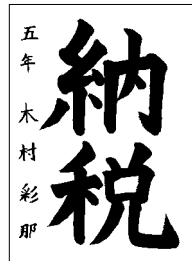 納税
五年 木村彩那